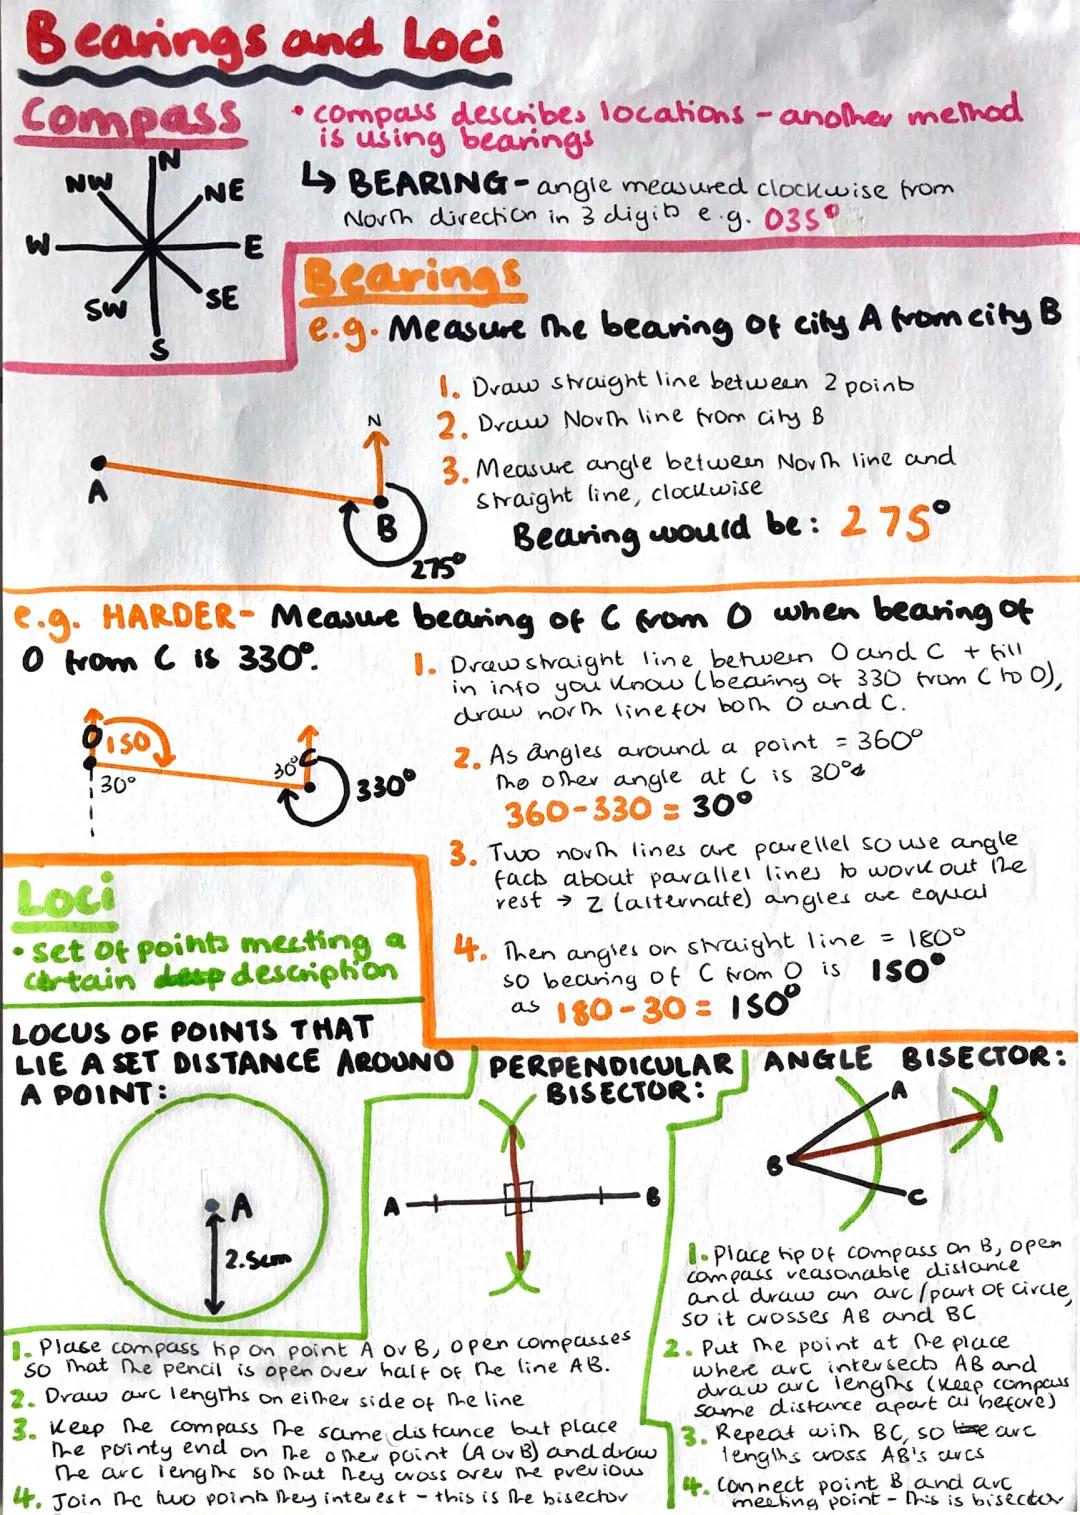 Bearings and Loci
Compass
• compass describes locations - another method
is using bearings
↳ BEARING - angle measured clockwise from
North direction in 3 digits e.g. 035°
N
NW
NE
W
E
SW
SE
S
Bearings
e.g. Measure the bearing of city A from city B
1. Draw straight line between 2 points
2. Draw North line from city B
3. Measure angle between North line and
straight line, clockwise
Bearing would be: 275°
N
A
B
275°
e.g. HARDER - Measure bearing of C from O when bearing of
O from C is 330°.
1. Draw straight line between O and C + fill
in info you know (bearing of 330 from C to O),
draw north line for both O and C.
2. As angles around a point = 360°
the other angle at C is 30°
360-330 = 30°
3. Two north lines are parellel so use angle
facts about parallel lines to work out the
rest → Z (alternate) angles are equal
4. Then angles on straight line = 180°
so bearing of C from O is 150°
as 180-30 = 150°
O
150
30°
30°
C
330°
Loci
• set of points meeting a
certain description
LOCUS OF POINTS THAT
LIE A SET DISTANCE AROUND
A POINT:
A
2.5cm
PERPENDICULAR
BISECTOR:
A
B
1. Place compass tip on point A or B, open compasses
so that the pencil is open over half of the line AB.
2. Draw arc lengths on either side of the line
3. Keep the compass the same distance but place
the pointy end on the other point (A or B) and draw
the arc lengths so that they cross over the previous
4. Join the two points they interest - this is the bisector
ANGLE BISECTOR:
A
B
C
1. Place tip of compass on B, open
compass reasonable distance
and draw an arc/part of circle,
so it crosses AB and BC
2. Put the point at the place
where arc intersects AB and
draw arc lengths (keep compass
same distance apart as before)
3. Repeat with BC, so the arc
lengths cross AB's arcs
4. Connect point B and arc
meeting point - this is bisector